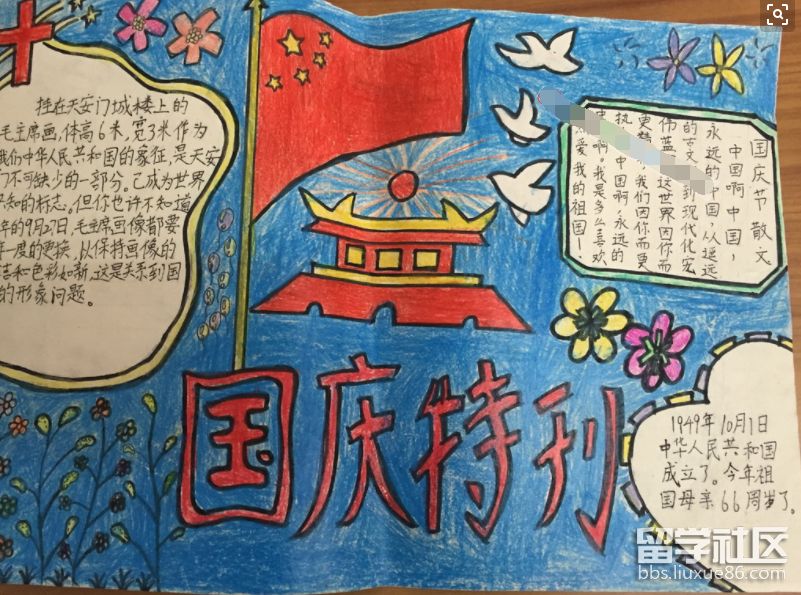 挂在天安门城楼上的
毛主席画,体高6米,宽3米作为
我们中华人民共和国的象征,是天安
门不可缺少的一部分。已成为世界
知的标志。但你也许不知道
年的9月27日,毛主席画像都要
年一度的更换,以保持画像的
洁和色彩如新,这是关系到国
的形象问题。
国庆节散文
中国啊中国,
永远的中国,从遥远
的古文 到现代化宏
伟蓝 这世界因你而
更 我们因你而更
执 中国啊,永远的
啊。我是多么喜欢
爱我的祖国!
国庆特刊
1949年10月1日
中华人民共和国
成立了。今年祖
国母亲66周岁了。
留学社区
bbs.liuxue86.com